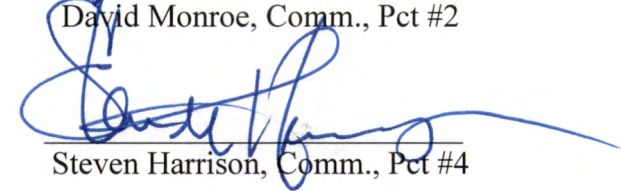 David Monroe, Comm., Pct #2
Steven Harrison, Comm., Pct #4